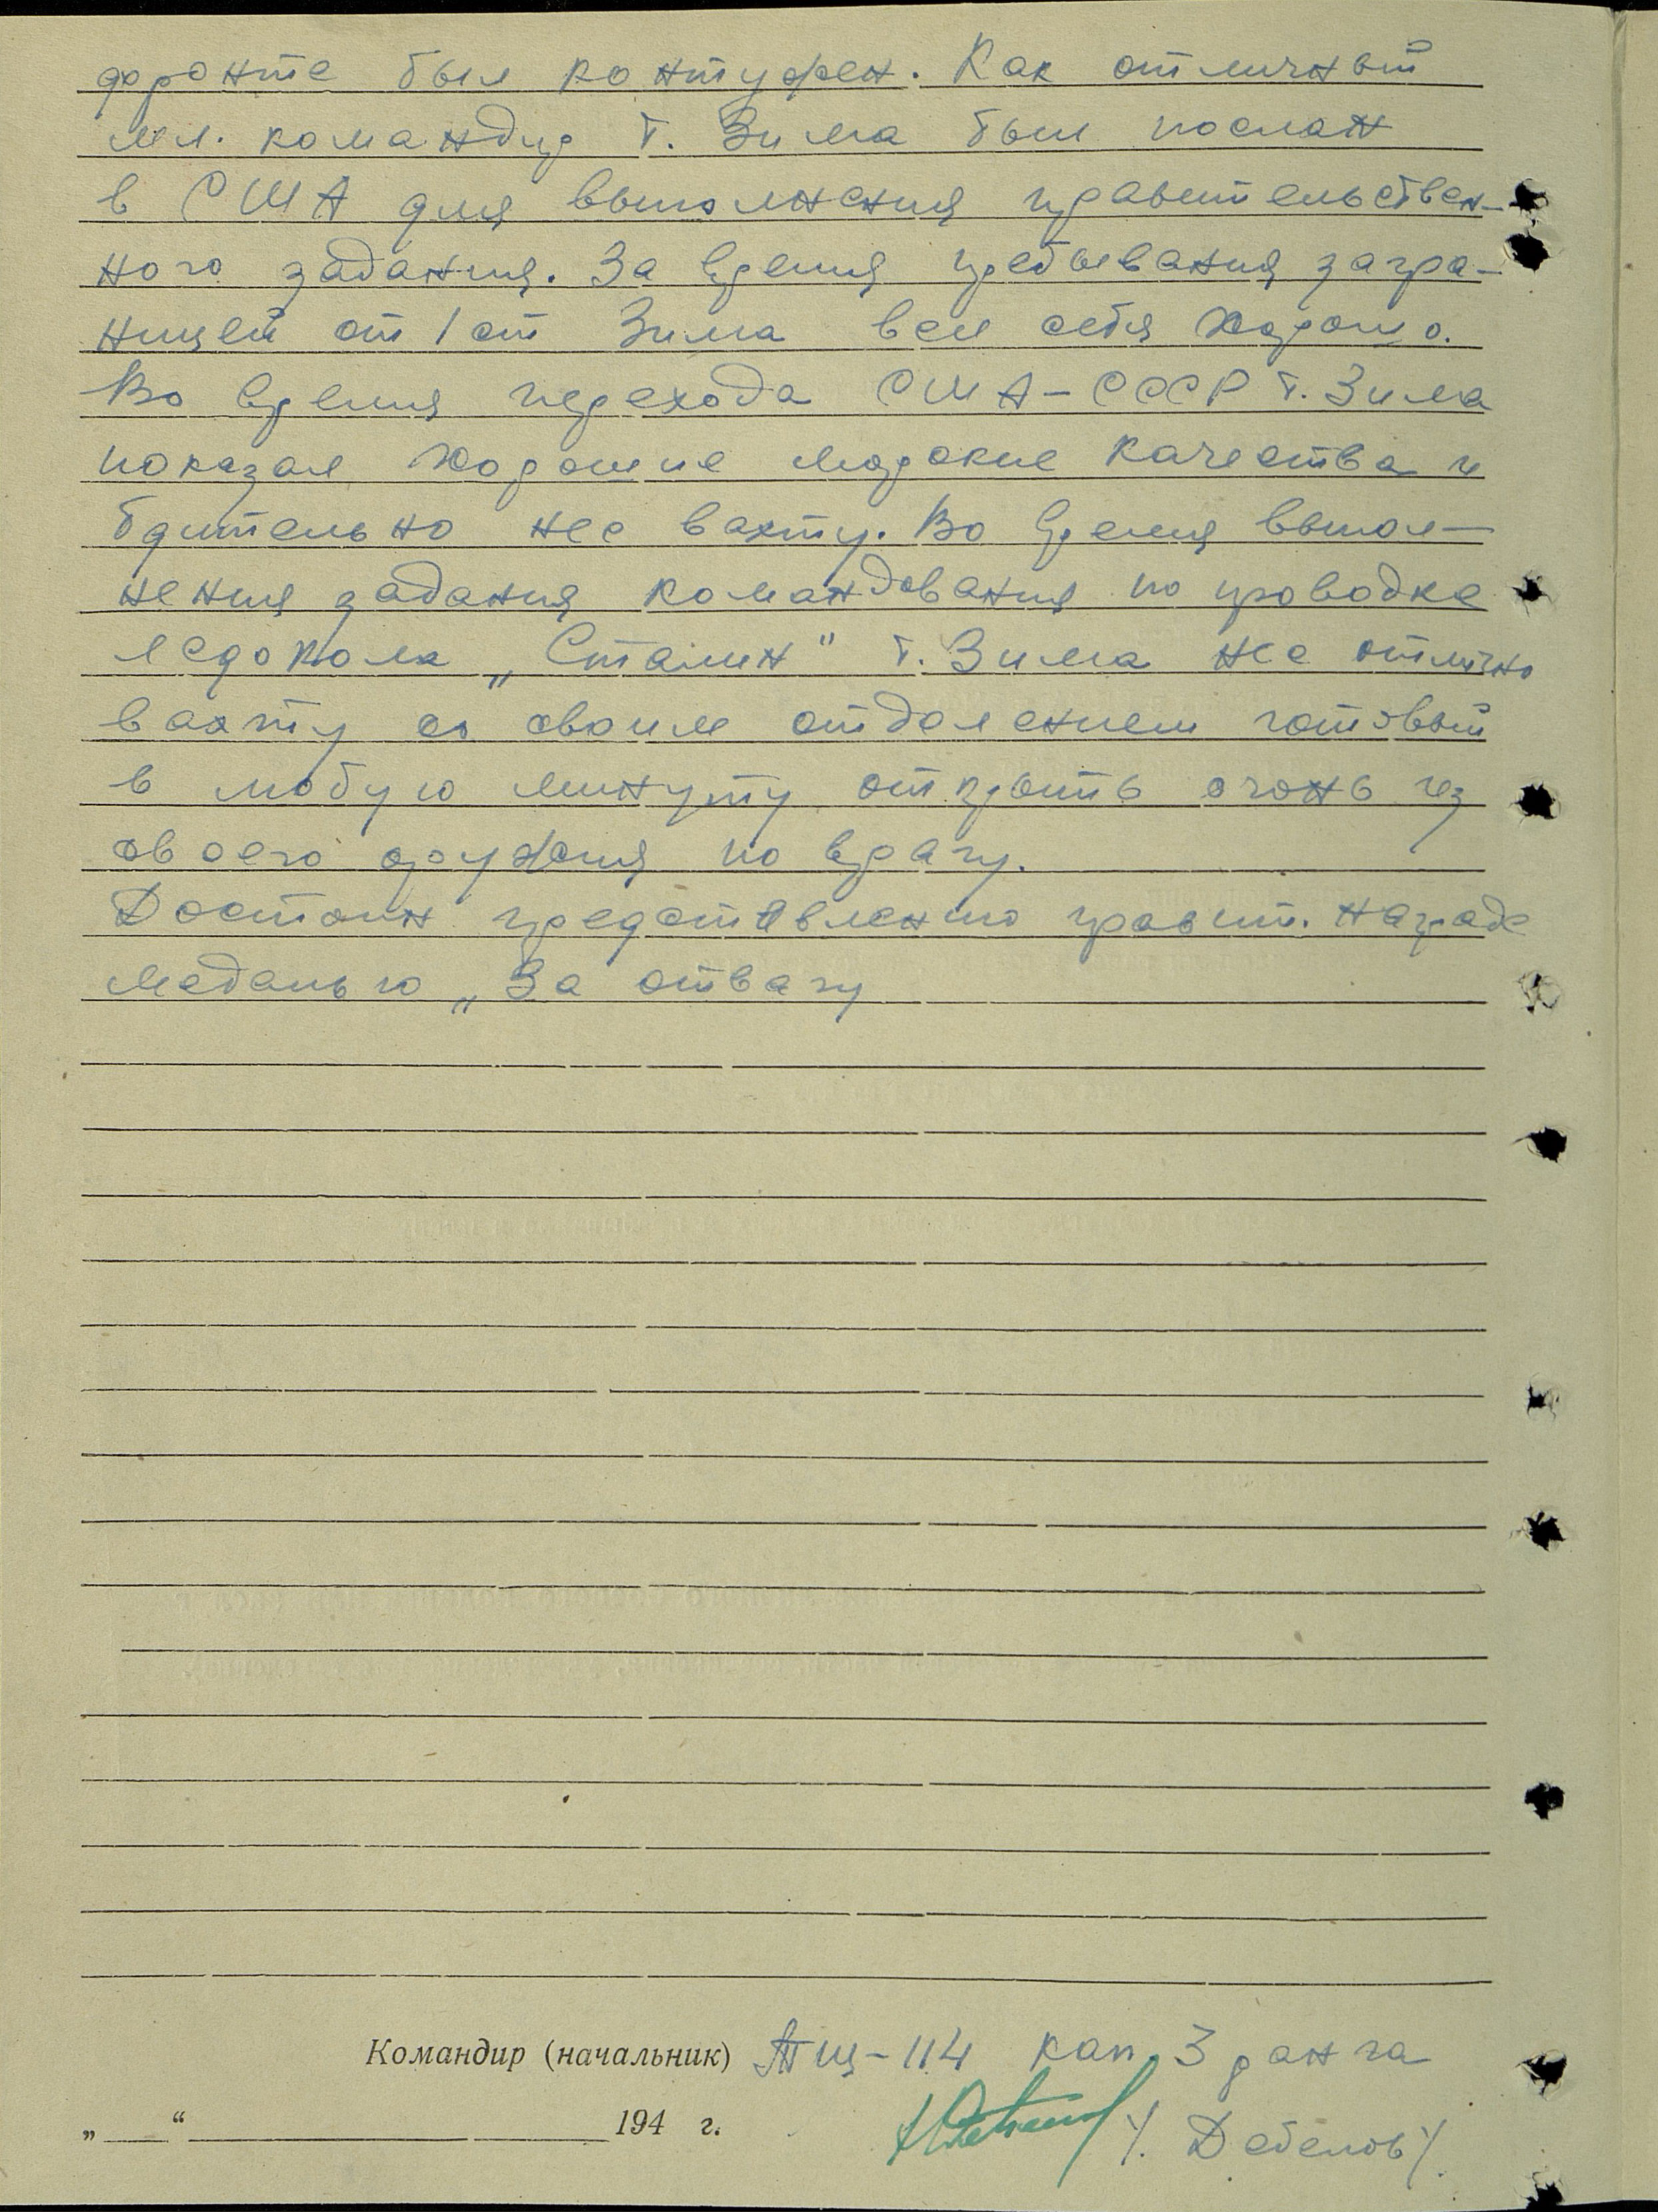 фронте был контужен. Как отличный
мл. командир т. Зима был послан
в США для выполнения правительствен-
ного задания. За время пребывания загра-
ницей от 1 ст Зима вел себя хорошо.
Во время перехода США-СССР т. Зима
показал хорошие морские качества и
бдительно нес вахту. Во время выпол-
нения задания командования по проводке
ледокола „Сталин" т. Зима нес отлично
вахту со своим отделением готовый
в любую минуту открыть огонь из
своего оружия по врагу.
Достоин представлению правит. награде
медалью „За отвагу
Командир (начальник) Тщ-114 кап. 3 ранга
„ “ 194 г. /. Дебелов/.